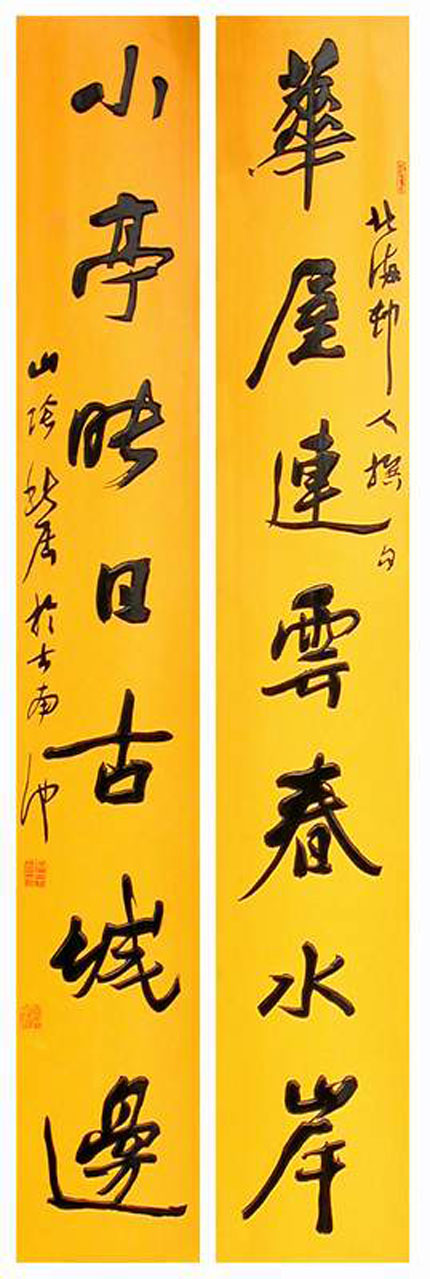 北海邨人撰句
華屋連雲春水岸
小亭映日古城邊
山陰居於古南池